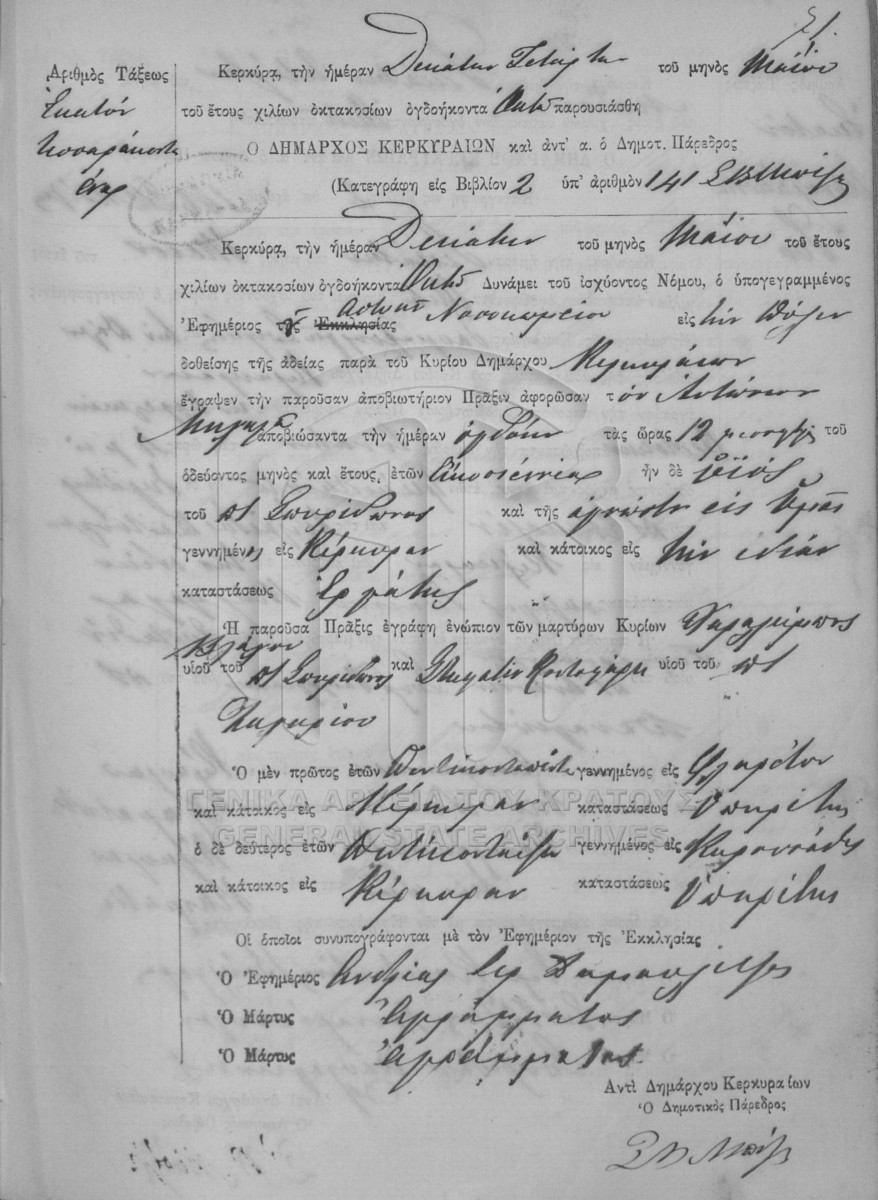 Ἀριθμὸς Τάξεως
Ἑκατόν
τεσσαράκοντα
ἕνας
Κερκύρα, τὴν ἡμέραν Δεκάτην Τετάρτην τοῦ μηνὸς Μαΐου
τοῦ ἔτους χιλίων ὀκτακοσίων ὀγδοήκοντα Ὀκτὼ παρουσιάσθη
Ο ΔΗΜΑΡΧΟΣ ΚΕΡΚΥΡΑΙΩΝ καὶ ἀντ' α. ὁ Δημοτ. Πάρεδρος
(Κατεγράφη εἰς Βιβλίον 2 ὑπ' ἀριθμὸν 141
Κερκύρα, τὴν ἡμέραν Δεκάτην τοῦ μηνὸς Μαΐου τοῦ ἔτους
χιλίων ὀκτακοσίων ὀγδοήκοντα Ὀκτὼ Δυνάμει τοῦ ἰσχύοντος Νόμου, ὁ ὑπογεγραμμένος
Ἐφημέριος τοῦ Ἐκκλησίας Ἀστυκοῦ Νοσοκομείου εἰς τὴν Πόλιν
δοθείσης τῆς ἀδείας παρὰ τοῦ Κυρίου Δημάρχου Κερκυραίων
ἔγραψεν τὴν παροῦσαν ἀποβιωτήριον Πρᾶξιν ἀφορῶσαν τὸν Ἀντώνιον
ἀποβιώσαντα τὴν ἡμέραν ὀγδόην τὰς ὥρας 12 τοῦ
ὁδεύοντος μηνὸς καὶ ἔτους, ἐτῶν Εἰκοσιεννέα ἦν δὲ υἱός
τοῦ πτ Σπυρίδωνος καὶ τῆς ἀγνώστου εἰς ἡμᾶς
γεννημένος εἰς Κέρκυραν καὶ κάτοικος εἰς τὴν ἰδίαν
καταστάσεως Ἐργάτης
Ἡ παροῦσα Πρᾶξις ἐγράφη ἐνώπιον τῶν μαρτύρων Κυρίων Χαραλάμπους
Βλάχου
υἱοῦ τοῦ πτ Σπυρίδωνος καὶ Σταματίου υἱοῦ τοῦ πτ
Ζαχαρίου
Ὁ μὲν πρῶτος ἐτῶν Πεντηκονταπέντε γεννημένος εἰς
καὶ κάτοικος εἰς Κέρκυραν καταστάσεως Ὑπηρέτης
ὁ δὲ δεύτερος ἐτῶν Πεντηκονταέξι γεννημένος εἰς Καρουσάδες
καὶ κάτοικος εἰς Κέρκυραν καταστάσεως Ὑπηρέτης
Οἱ ὁποῖοι συνυπογράφονται μὲ τὸν Ἐφημέριον τῆς Ἐκκλησίας
Ὁ Ἐφημέριος Ἀνδρέας Ἱερ
Ὁ Μάρτυς Ἀγράμματος
Ὁ Μάρτυς Ἀγράμματος
Αντὶ Δημάρχου Κερκυραίων
Ὁ Δημοτικὸς Πάρεδρος
ΓΕΝΙΚΑ ΑΡΧΕΙΑ ΤΟΥ ΚΡΑΤΟΥΣ
GENERAL STATE ARCHIVES